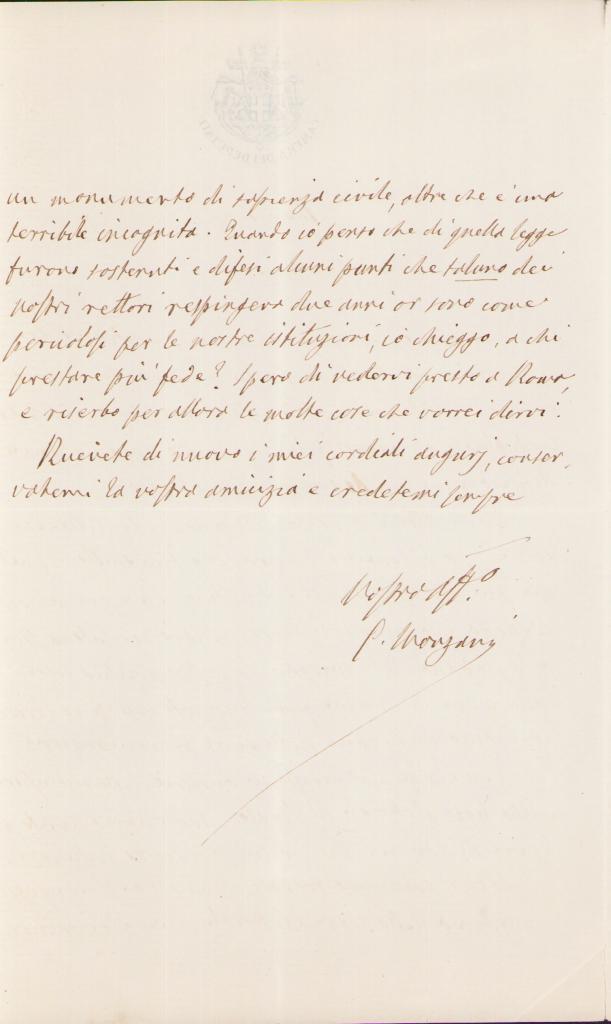 CAMERA DEI DEPUTATI
un monumento di sapienza civile, altro che è una
terribile incognita. Quando io penso che di quella legge
furono sostenuti e difesi alcuni punti che taluno dei
nostri rettori respingeva due anni or sono come
pericolosi per le nostre istituzioni, io chieggo, a chi
prestare più fede? Spero di vedervi presto a Roma,
e riserbo per allora le molte cose che vorrei dirvi.
Ricevete di nuovo i miei cordiali augurj, conser-
vatemi la vostra amicizia e credetemi sempre
Vostro Aff.o